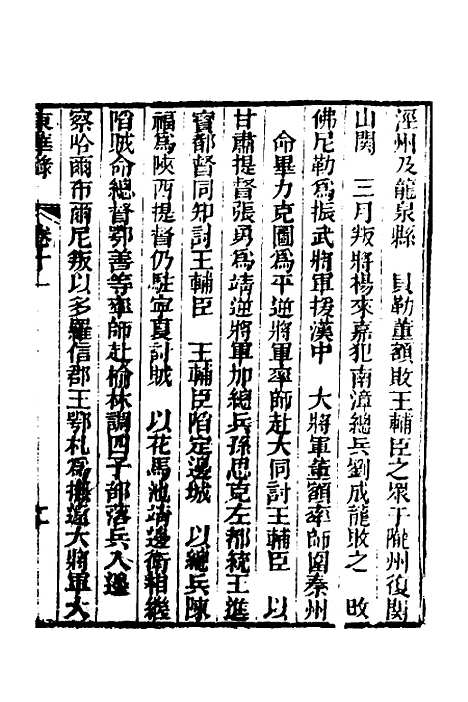 涇州及龍泉縣　貝勒董額敗王輔臣之眾于隴州復関
山関　三月叛將楊來嘉犯南漳總兵劉成龍敗之　改
佛尼勒爲振武將軍援漢中　大將軍董額率師圍秦州
命畢力克圖爲平逆將軍率師赴大同討王輔臣　以
甘肅提督張勇爲靖逆將軍加總兵孫思克左都統王進
寶都督同知討王輔臣　王輔臣陷定邊城　以總兵陳
福爲陝西提督仍駐寧夏討賊　以花馬池靖邊衛相繼
陷賊命總督鄂善等率師赴榆林調四子部落兵入邊
察哈爾布爾尼叛以多羅信郡王鄂札爲撫遠大將軍大
東華錄　卷十一